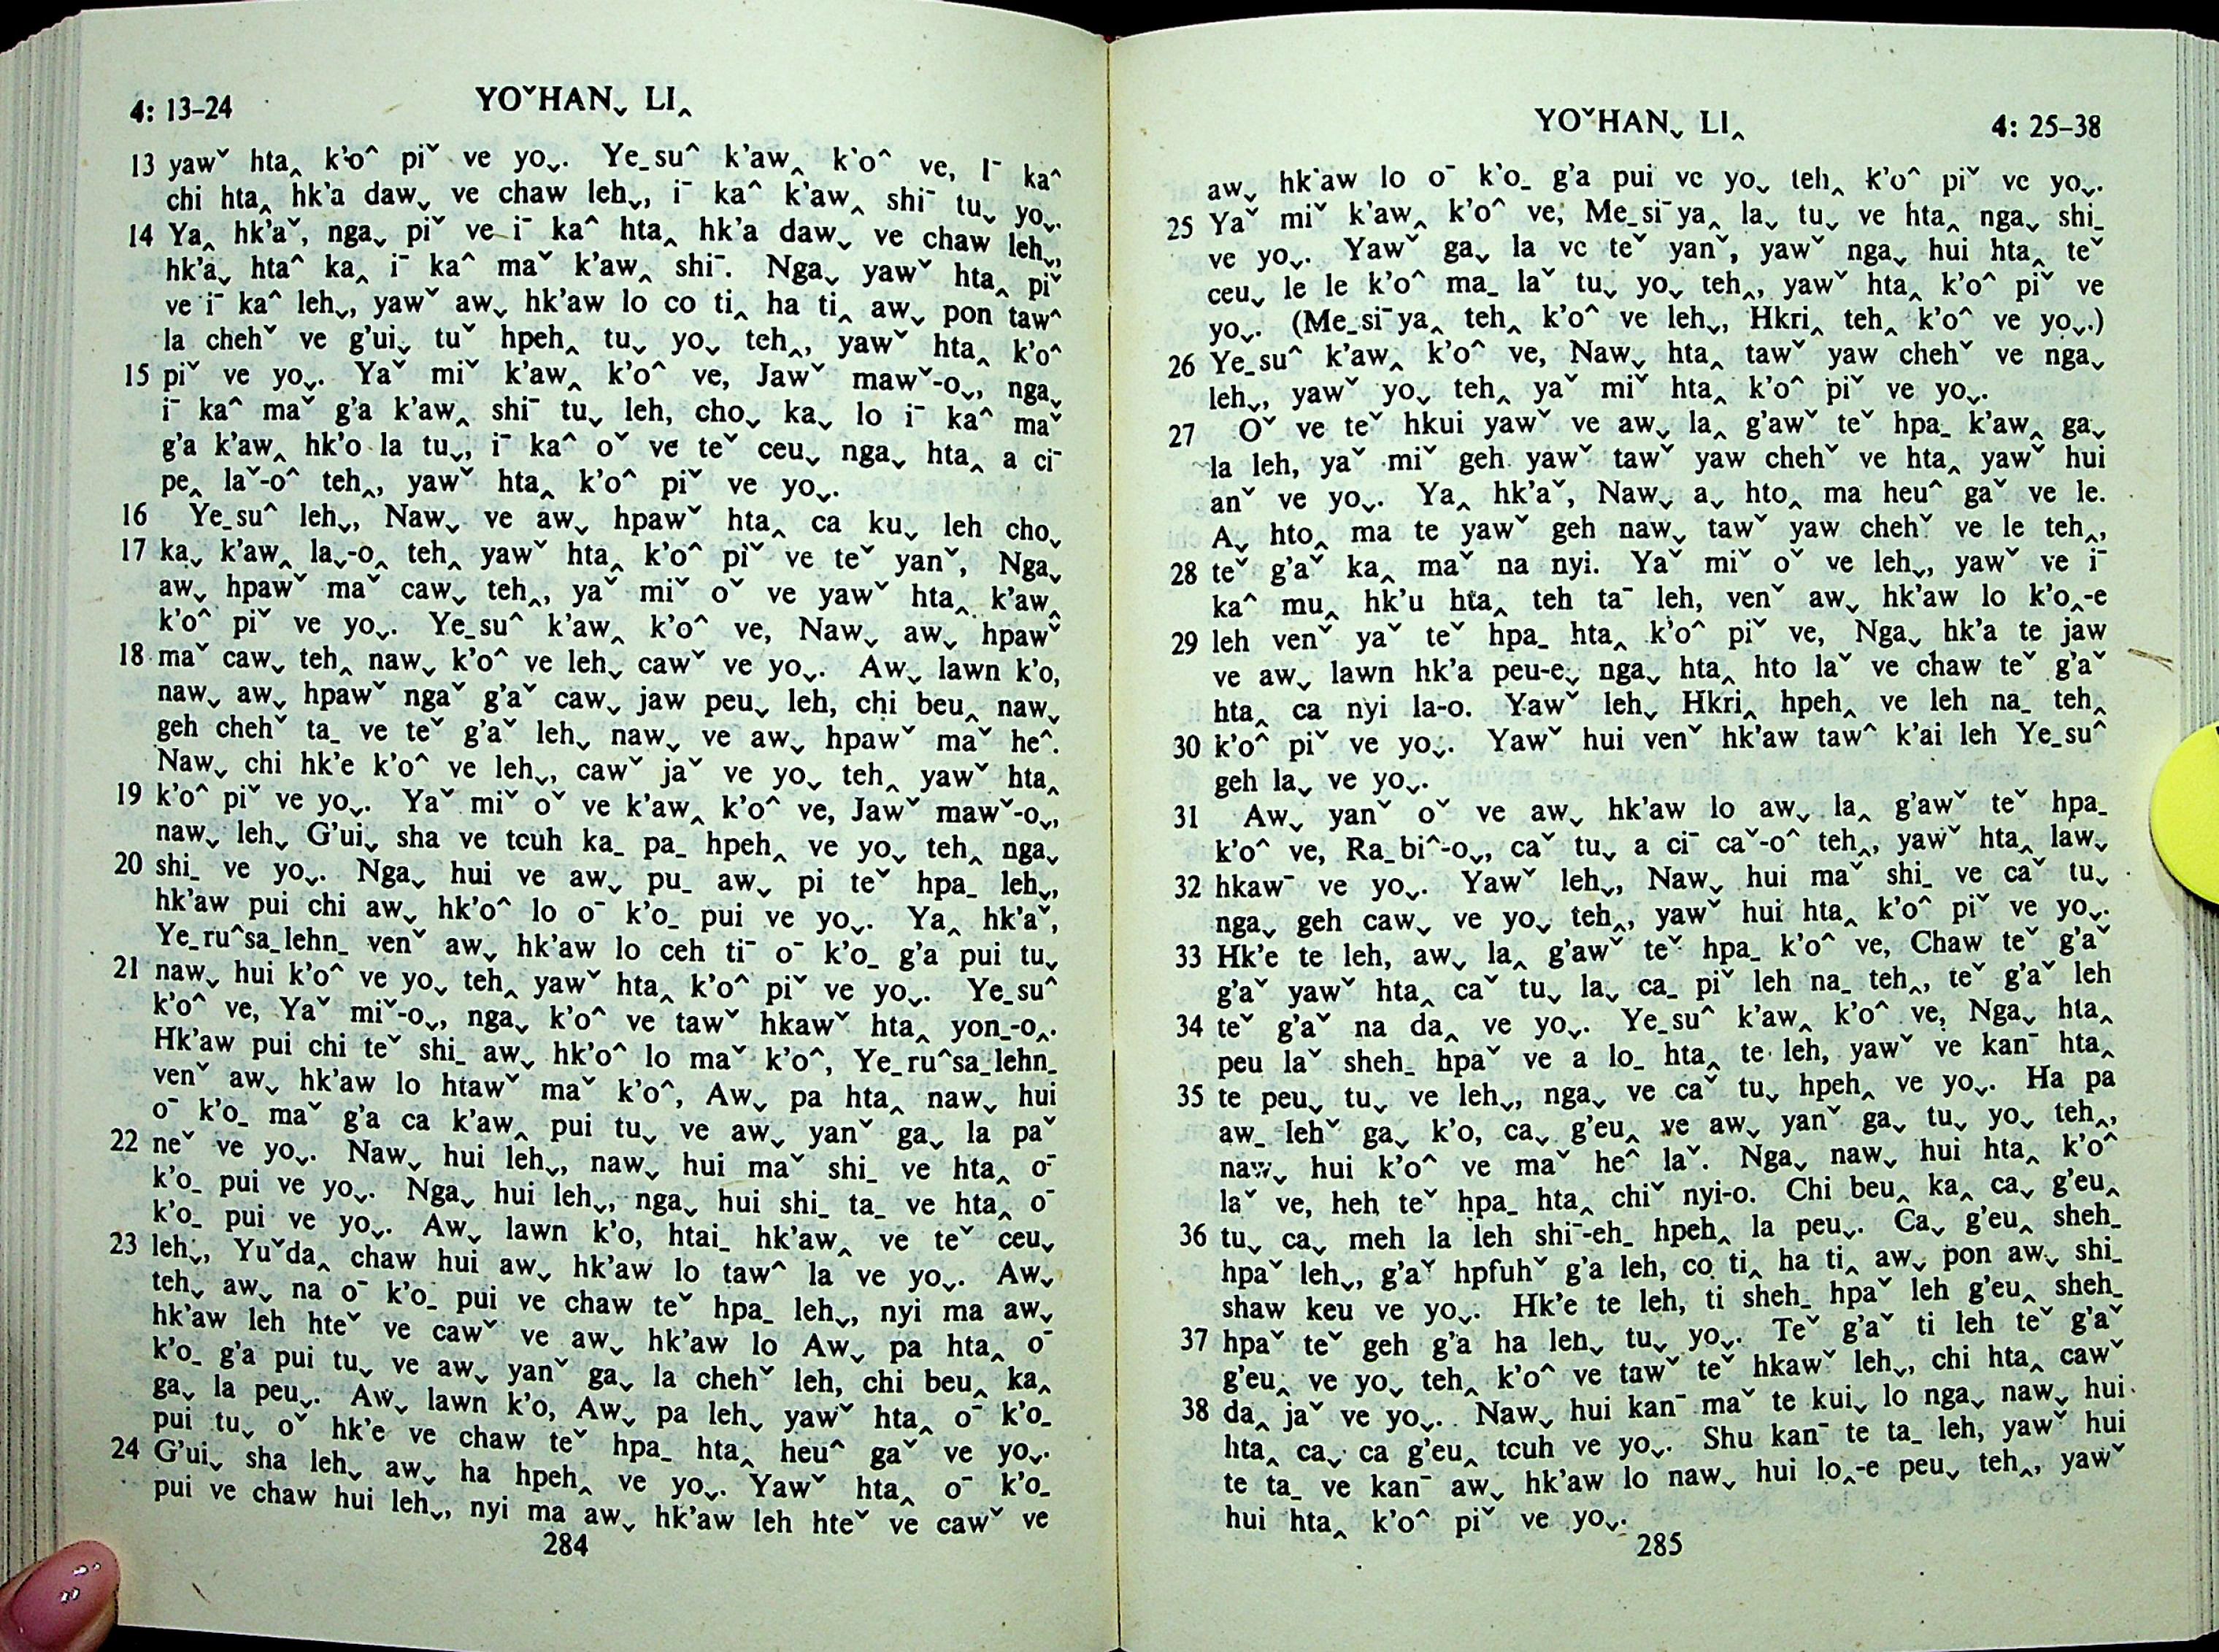 4: 13–24
YOˇHAN˯ LI‸
13 yawˇ hta‸ k'o^ piˇ ve yo˯. Ye_su^ k'aw‸ k'o^ ve, I¯ ka^
chi hta‸ hk'a daw˯ ve chaw leh˯, i¯ ka^ k'aw‸ shi¯ tu˯ yo˯.
14 Ya‸ hk'aˇ, nga˯ piˇ ve i¯ ka^ hta‸ hk'a daw˯ ve chaw leh˯,
hk'a˯ hta^ ka‸ i¯ ka^ maˇ k'aw‸ shi¯. Nga˯ yawˇ hta‸ piˇ
ve i¯ ka^ leh˯, yawˇ aw˯ hk'aw lo co ti‸ ha ti‸ aw˯ pon taw^
la chehˇ ve g'ui˯ tuˇ hpeh‸ tu˯ yo˯ teh‸, yawˇ hta‸ k'o^
15 piˇ ve yo˯. Yaˇ miˇ k'aw‸ k'o^ ve, Jawˇ mawˇ-o˯, nga˯
i¯ ka^ maˇ g'a k'aw‸ shi¯ tu˯ leh, cho˯ ka˯ lo i¯ ka^ maˇ
g'a k'aw‸ hk'o la tu˯, i¯ ka^ oˇ ve teˇ ceu˯ nga˯ hta‸ a ci¯
pe‸ laˇ-o^ teh‸, yawˇ hta‸ k'o^ piˇ ve yo˯.
16 Ye_su^ leh˯, Naw˯ ve aw˯ hpawˇ hta‸ ca ku˯ leh cho˯
17 ka˯ k'aw‸ la˯-o‸ teh‸ yawˇ hta‸ k'o^ piˇ ve teˇ yanˇ, Nga˯
aw˯ hpawˇ maˇ caw˯ teh‸, yaˇ miˇ oˇ ve yawˇ hta‸ k'aw‸
k'o^ piˇ ve yo˯. Ye_su^ k'aw‸ k'o^ ve, Naw˯ aw˯ hpawˇ
18 maˇ caw˯ teh‸ naw˯ k'o^ ve leh˯ cawˇ ve yo˯. Aw˯ lawn k'o,
naw˯ aw˯ hpawˇ ngaˇ g'aˇ caw˯ jaw peu˯ leh, chi beu‸ naw˯
geh chehˇ ta_ ve teˇ g'aˇ leh˯ naw˯ ve aw˯ hpawˇ maˇ he^.
Naw˯ chi hk'e k'o^ ve leh˯, cawˇ jaˇ ve yo˯ teh‸ yawˇ hta‸
19 k'o^ piˇ ve yo˯. Yaˇ miˇ oˇ ve k'aw‸ k'o^ ve, Jawˇ mawˇ-o˯,
naw˯ leh˯ G'ui˯ sha ve tcuh ka_ pa_ hpeh‸ ve yo˯ teh‸ nga˯
20 shi_ ve yo˯. Nga˯ hui ve aw˯ pu_ aw˯ pi teˇ hpa_ leh˯,
hk'aw pui chi aw˯ hk'o^ lo o¯ k'o_ pui ve yo˯. Ya‸ hk'aˇ,
Ye_ru^sa_lehn_ venˇ aw˯ hk'aw lo ceh ti¯ o¯ k'o_ g'a pui tu˯
21 naw˯ hui k'o^ ve yo˯ teh‸ yawˇ hta‸ k'o^ piˇ ve yo˯. Ye_su^
k'o^ ve, Yaˇ miˇ-o˯, nga˯ k'o^ ve tawˇ hkawˇ hta‸ yon_-o‸.
Hk'aw pui chi teˇ shi_ aw˯ hk'o^ lo maˇ k'o^, Ye_ru^sa_lehn_
venˇ aw˯ hk'aw lo htawˇ maˇ k'o^, Aw˯ pa hta‸ naw˯ hui
o¯ k'o_ maˇ g'a ca k'aw‸ pui tu˯ ve aw˯ yanˇ ga˯ la paˇ
22 neˇ ve yo˯. Naw˯ hui leh˯, naw˯ hui maˇ shi_ ve hta‸ o¯
k'o_ pui ve yo˯. Nga˯ hui leh˯, nga˯ hui shi_ ta_ ve hta‸ o¯
k'o_ pui ve yo˯. Aw˯ lawn k'o, htai_ hk'aw‸ ve teˇ ceu˯
23 leh˯, Yuˇda‸ chaw hui aw˯ hk'aw lo taw^ la ve yo˯. Aw˯
teh˯ aw˯ na o¯ k'o_ pui ve chaw teˇ hpa_ leh˯, nyi ma aw˯
hk'aw leh hteˇ ve cawˇ ve aw˯ hk'aw lo Aw˯ pa hta‸ o¯
k'o_ g'a pui tu˯ ve aw˯ yanˇ ga˯ la chehˇ leh, chi beu‸ ka‸
ga˯ la peu˯. Aw˯ lawn k'o, Aw˯ pa leh˯ yawˇ hta‸ o¯ k'o_
pui tu˯ oˇ hk'e ve chaw teˇ hpa_ hta‸ heu^ gaˇ ve yo˯.
24 G'ui˯ sha leh˯ aw˯ ha hpeh‸ ve yo˯. Yawˇ hta‸ o¯ k'o_
pui ve chaw hui leh˯, nyi ma aw˯ hk'aw leh hteˇ ve cawˇ ve
284
YOˇHAN˯ LI‸
4: 25–38
aw˯ hk'aw lo o¯ k'o_ g'a pui ve yo˯ teh‸ k'o^ piˇ ve yo˯.
25 Yaˇ miˇ k'aw‸ k'o^ ve, Me_si¯ya‸ la˯ tu˯ ve hta‸ nga˯ shi_
ve yo˯. Yawˇ ga˯ la ve teˇ yanˇ, yawˇ nga˯ hui hta‸ teˇ
ceu˯ le le k'o^ ma_ laˇ tu˯ yo˯ teh‸, yawˇ hta‸ k'o^ piˇ ve
yo˯. (Me_si¯ya‸ teh‸ k'o^ ve leh˯, Hkri‸ teh‸ k'o^ ve yo˯.)
26 Ye_su^ k'aw‸ k'o^ ve, Naw˯ hta‸ tawˇ yaw chehˇ ve nga˯
leh˯, yawˇ yo˯ teh‸ yaˇ miˇ hta‸ k'o^ piˇ ve yo˯.
27 Oˇ ve teˇ hkui yawˇ ve aw˯ la‸ g'awˇ teˇ hpa_ k'aw‸ ga˯
la leh, yaˇ miˇ geh yawˇ tawˇ yaw chehˇ ve hta‸ yawˇ hui
anˇ ve yo˯. Ya‸ hk'aˇ, Naw˯ a˯ hto‸ ma heu^ gaˇ ve le.
A˯ hto‸ ma te yawˇ geh naw˯ tawˇ yaw chehˇ ve le teh‸,
28 teˇ g'aˇ ka‸ maˇ na nyi. Yaˇ miˇ oˇ ve leh˯, yawˇ ve i¯
ka^ mu‸ hk'u hta‸ teh ta¯ leh, venˇ aw˯ hk'aw lo k'o‸-e
29 leh venˇ yaˇ teˇ hpa_ hta‸ k'o^ piˇ ve, Nga˯ hk'a te jaw
ve aw˯ lawn hk'a peu-e˯ nga˯ hta‸ hto laˇ ve chaw teˇ g'aˇ
hta‸ ca nyi la-o. Yawˇ leh˯ Hkri‸ hpeh‸ ve leh na_ teh‸
30 k'o^ piˇ ve yo˯. Yawˇ hui venˇ hk'aw taw^ k'ai leh Ye_su^
geh la˯ ve yo˯.
31 Aw˯ yanˇ oˇ ve aw˯ hk'aw lo aw˯ la‸ g'awˇ teˇ hpa_
k'o^ ve, Ra_bi^-o˯, caˇ tu˯ a ci¯ caˇ-o^ teh‸, yawˇ hta‸ law˯
32 hkaw¯ ve yo˯. Yawˇ leh˯, Naw˯ hui maˇ shi_ ve caˇ tu˯
nga˯ geh caw˯ ve yo˯ teh‸, yawˇ hui hta‸ k'o^ piˇ ve yo˯.
33 Hk'e te leh, aw˯ la‸ g'awˇ teˇ hpa_ k'o^ ve, Chaw teˇ g'aˇ
g'aˇ yawˇ hta‸ caˇ tu˯ la˯ ca_ piˇ leh na_ teh‸, teˇ g'aˇ leh
34 teˇ g'aˇ na da‸ ve yo˯. Ye_su^ k'aw‸ k'o^ ve, Nga˯ hta‸
peu laˇ sheh_ hpaˇ ve a lo_ hta‸ te leh, yawˇ ve kan¯ hta‸
35 te peu˯ tu˯ ve leh˯, nga˯ ve caˇ tu˯ hpeh‸ ve yo˯. Ha pa
aw_ lehˇ ga˯ k'o, ca˯ g'eu‸ ve aw˯ yanˇ ga˯ tu˯ yo˯ teh‸,
naw˯ hui k'o^ ve maˇ he^ laˇ. Nga˯ naw˯ hui hta‸ k'o^
laˇ ve, heh teˇ hpa_ hta‸ chiˇ nyi-o. Chi beu‸ ka‸ ca˯ g'eu‸
36 tu˯ ca˯ meh la leh shi¯-eh_ hpeh‸ la peu˯. Ca˯ g'eu‸ sheh_
hpaˇ leh˯, g'aˇ hpfuhˇ g'a leh, co ti‸ ha ti‸ aw˯ pon aw˯ shi_
shaw keu ve yo˯. Hk'e te leh, ti sheh_ hpaˇ leh g'eu‸ sheh_
37 hpaˇ teˇ geh g'a ha leh˯ tu˯ yo˯. Teˇ g'aˇ ti leh teˇ g'aˇ
g'eu‸ ve yo˯ teh‸ k'o^ ve tawˇ teˇ hkawˇ leh˯, chi hta‸ cawˇ
38 da‸ jaˇ ve yo˯. Naw˯ hui kan¯ maˇ te kui˯ lo nga˯ naw˯ hui
hta‸ ca˯ ca g'eu‸ tcuh ve yo˯. Shu kan¯ te ta_ leh, yawˇ hui
te ta_ ve kan¯ aw˯ hk'aw lo naw˯ hui lo‸-e peu˯ teh‸, yawˇ
hui hta‸ k'o^ piˇ ve yo˯.
285